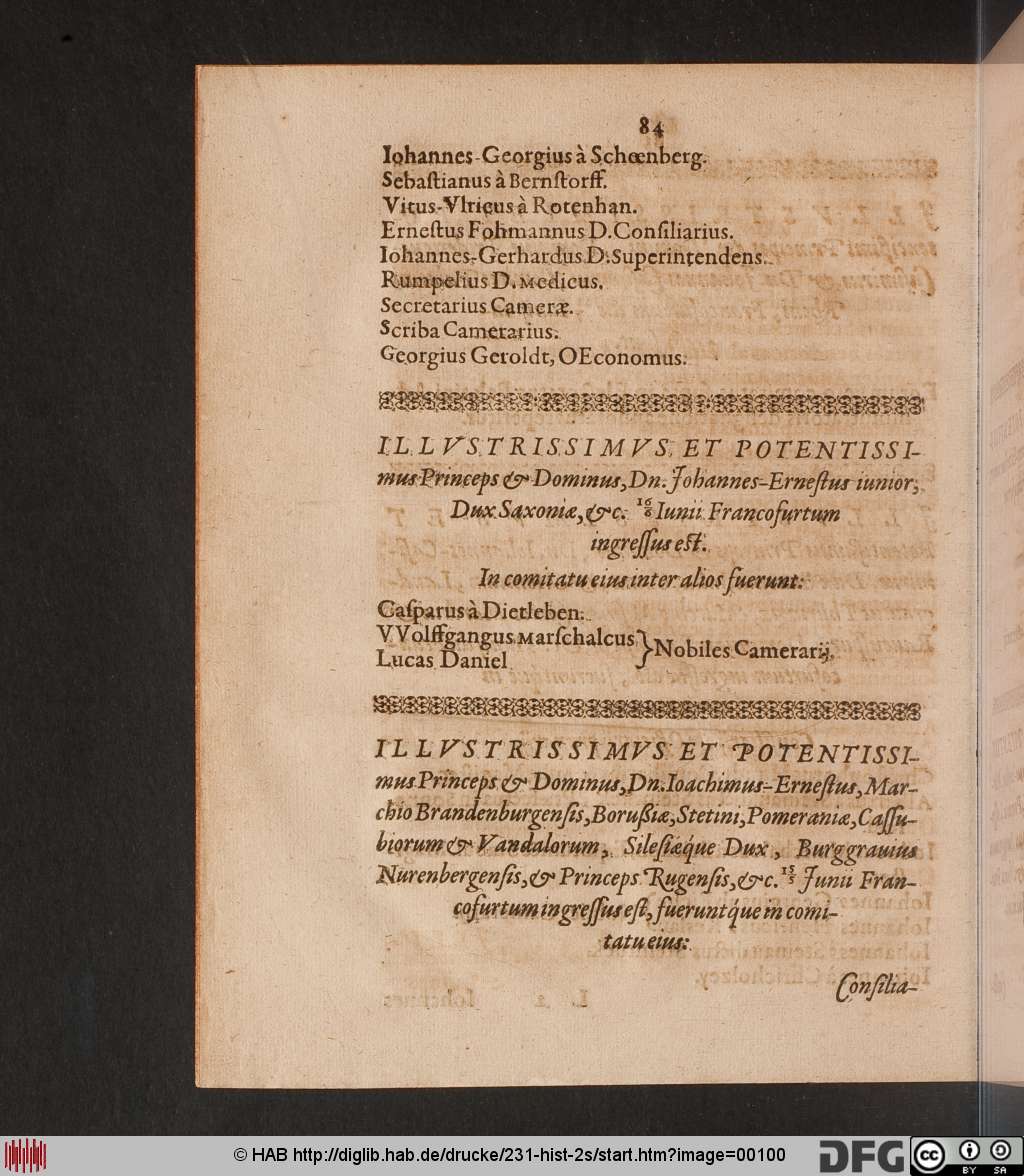 84
Iohannes-Georgius à Schœnberg.
Sebaſtianus à Bernſtorff.
Vitus-Vlricus à Rotenhan.
Erneſtus Fohmannus D. Conſiliarius.
Iohannes-Gerhardus D. Superintendens.
Rumpelius D. Medicus.
Secretarius Cameræ.
Scriba Camerarius.
Georgius Geroldt, OEconomus.
ILLVSTRISSIMVS ET POTENTISSI-
mus Princeps & Dominus, Dn. Johannes-Erneſtus iunior,
Dux Saxoniæ, &c. 16/6 Iunii Francofurtum
ingreſſus eſt.
In comitatu eius inter alios fuerunt:
Caſparus à Dietleben.
VVolffgangus Marſchalcus } Nobiles Camerarij.
Lucas Daniel
ILLVSTRISSIMVS ET POTENTISSI-
mus Princeps & Dominus, Dn. Ioachimus-Erneſtus, Mar-
chio Brandenburgenſis, Borußiæ, Stetini, Pomeraniæ, Caſſu-
biorum & Vandalorum, Sileſiæq́ue Dux, Burggrauius
Nurenbergenſis, & Princeps Rugenſis, &c. 15/5 Junii Fran-
cofurtum ingreſſus eſt, fueruntq́ue in comi-
tatu eius:
Conſilia-
© HAB http://diglib.hab.de/drucke/231-hist-2s/start.htm?image=00100
DFG
cc BY SA